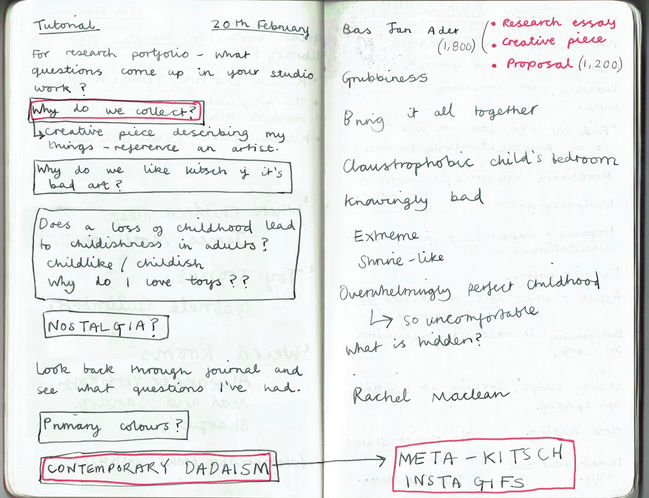 Tutorial 20th February
For research portfolio - what
questions come up in your studio
work?
Why do we collect?
↳ creative piece describing my
things - reference an artist.
Why do we like kitsch if it's
bad art?
Does a loss of childhood lead
to childishness in adults?
childlike / childish
Why do I love toys??
NOSTALGIA?
Look back through journal and
see what questions I've had.
Primary colours?
CONTEMPORARY DADAISM →
Bas Jan Ader
(1,800)
• Research essay
• Creative piece
• Proposal (1,200)
Grubbiness
Bring it all together
Claustrophobic child's bedroom
Knowingly bad
Extreme
Shrine-like
Overwhelmingly perfect childhood
↳ so uncomfortable
What is hidden?
Rachel Maclean
META-KITSCH
INSTA GIFS